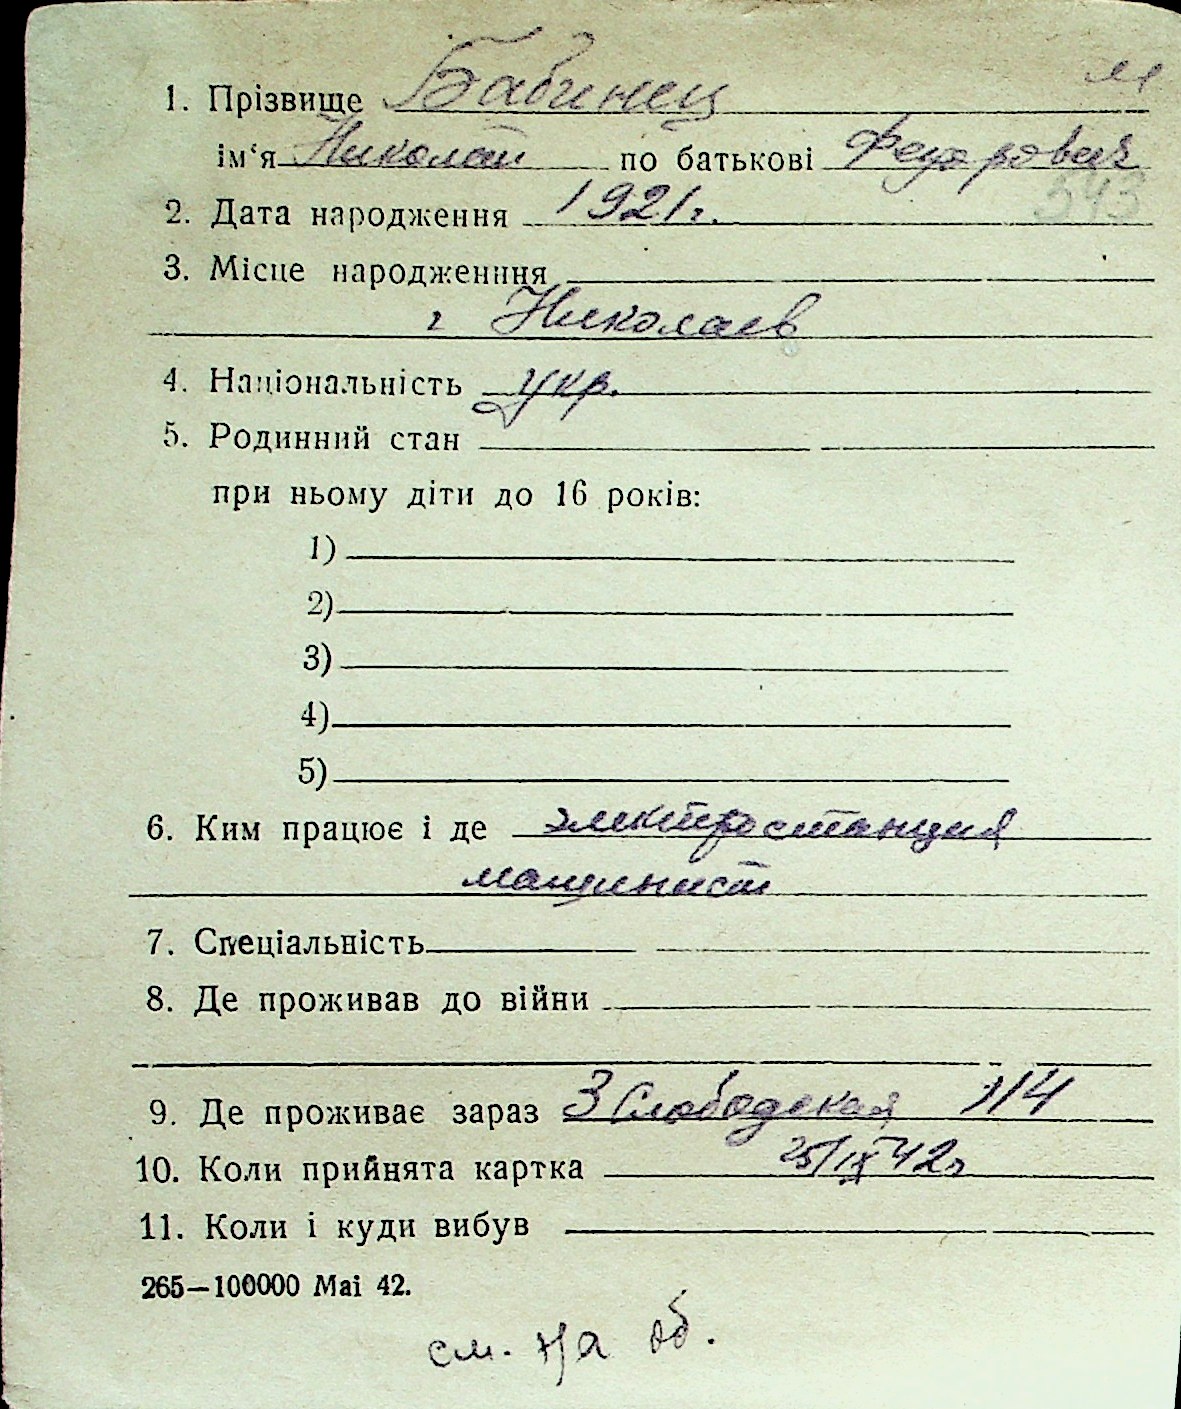 1. Прізвище Бабинец м
ім‘я Николай по батькові Федорович
2. Дата народження 1921 г. 543
3. Місце народженння
г Николаев
4. Національність укр.
5. Родинний стан
при ньому діти до 16 років:
1)
2)
3)
4)
5)
6. Ким працює і де электростанция
машинист
7. Спеціальність
8. Де проживав до війни
9. Де проживає зараз 3 Слободская 114
10. Коли прийнята картка 25/IX 42г
11. Коли і куди вибув
265—100000 Mai 42.
см. на об.